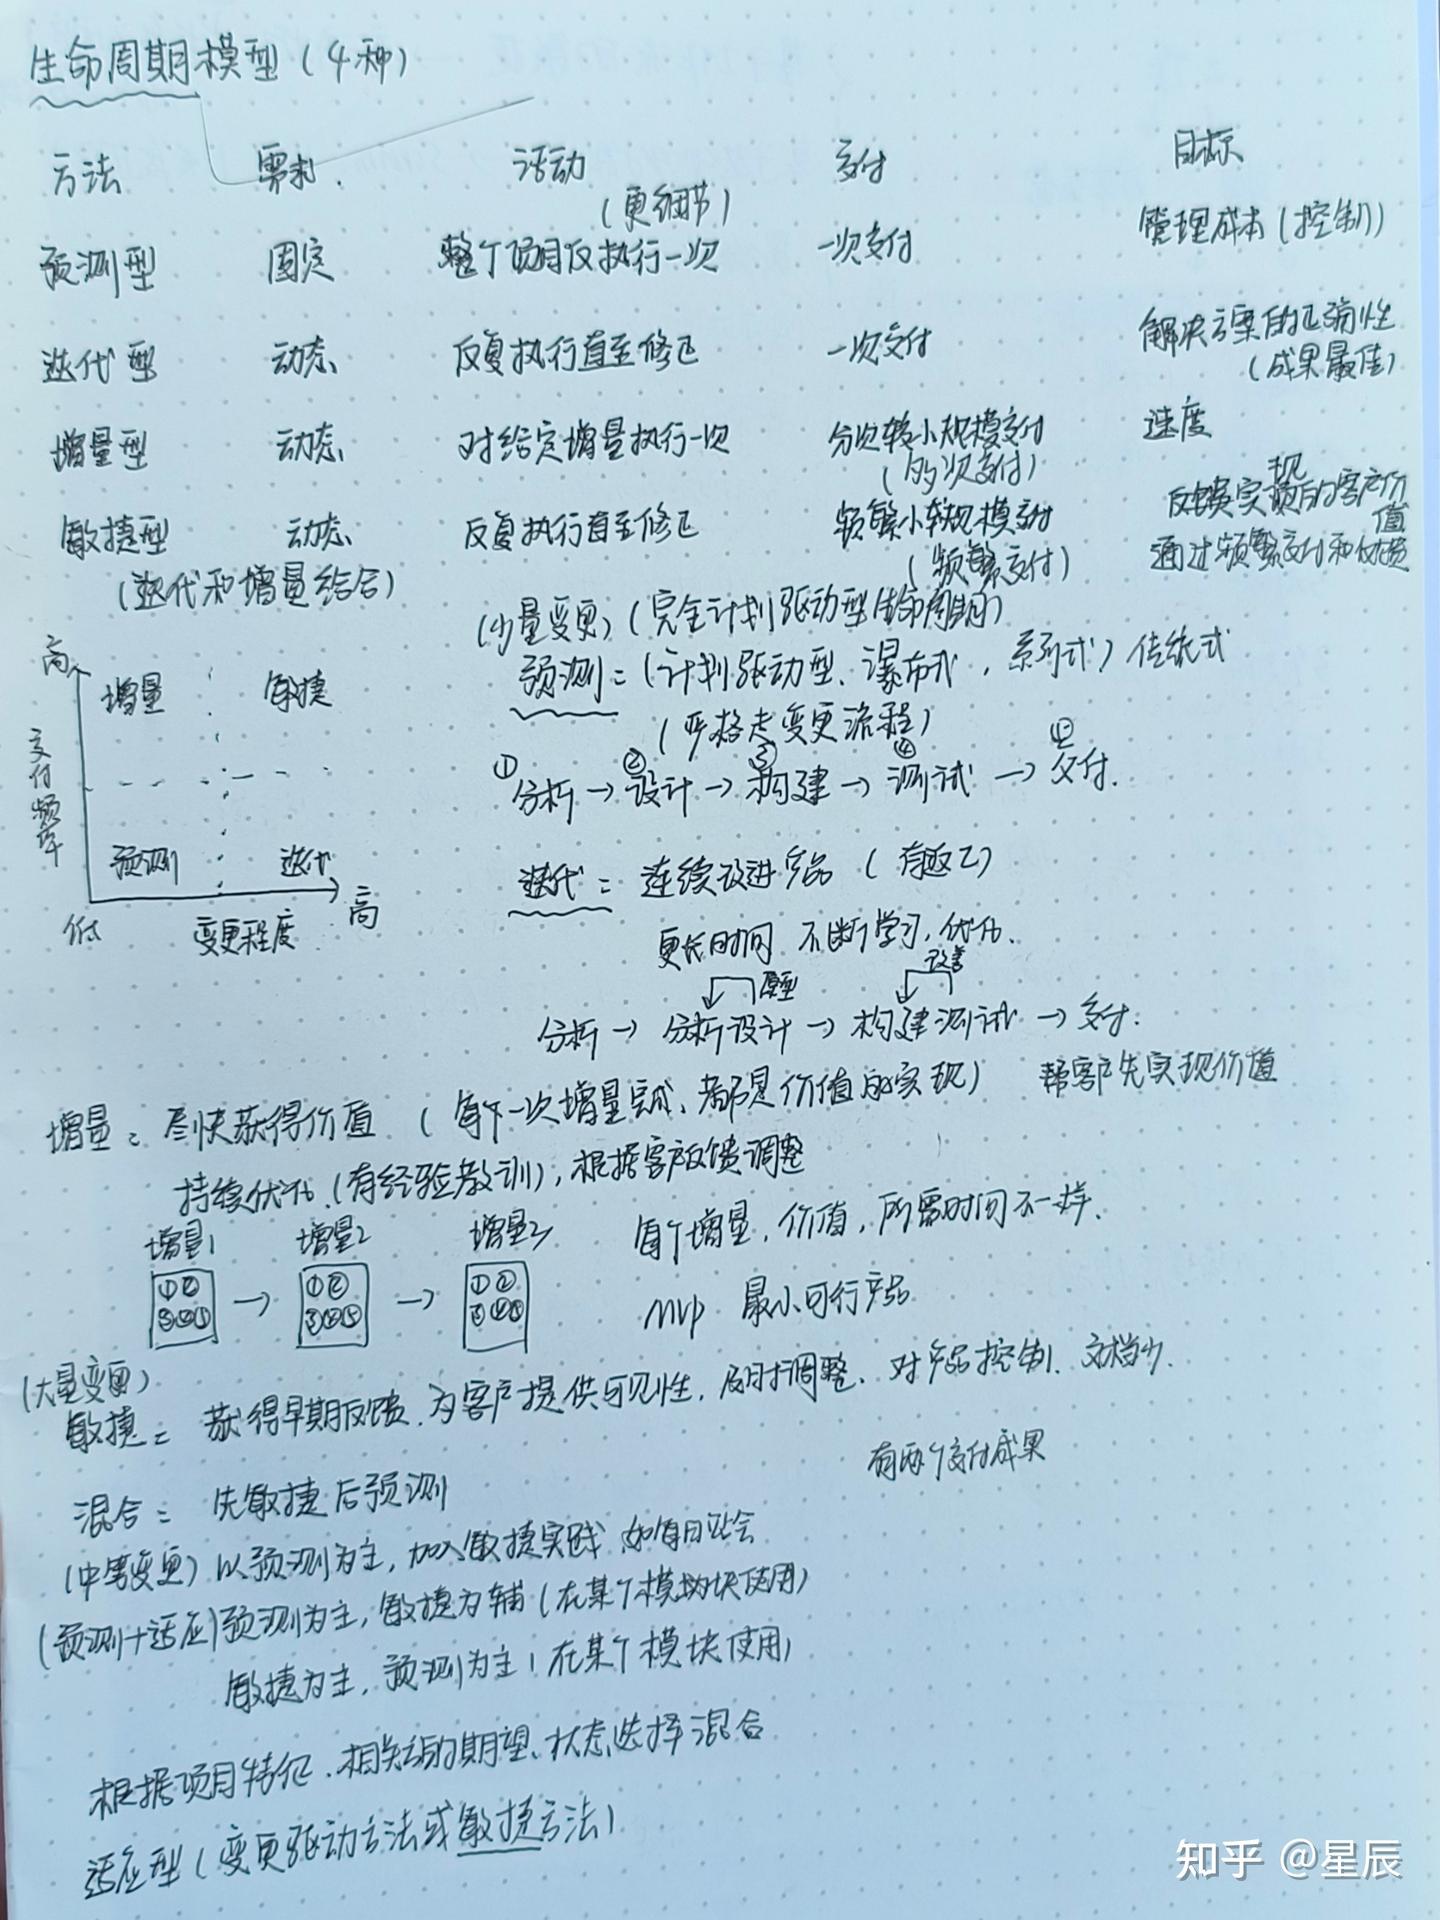 生命周期模型(4种)
方法 需求. 活动 交付 目标
(更细节)
预测型 固定 整个项目仅执行一次 一次交付 管理成本(控制)
迭代型 动态 反复执行直至修正 一次交付 解决方案的正确性
(成果最佳)
增量型 动态 对给定增量执行一次 分次较小规模交付 速度
(多次交付)
敏捷型 动态 反复执行直至修正 频繁小较规模交付 反馈实现的客户价值
(迭代和增量结合) (频繁交付) 通过频繁交付和反馈
(少量变更)(完全计划驱动型生命周期)
预测=(计划驱动型、瀑布式,系列式)传统式
(严格走变更流程)
①分析→②设计→③构建→④测试→交付.
高
增量 敏捷
交付频率
预测 迭代
低 变更程度 高
迭代= 连续改进产品(有返工)
更长时间 不断学习,优化.
原型 改善
分析→分析设计→构建测试→交付.
增量= 尽快获得价值(每个一次增量完成、都是价值的实现) 帮客户先实现价值
持续优化(有经验教训),根据客户反馈调整
增量1 增量2 增量3 每个增量,价值,所需时间不一样.
①②→①②→①②
MVP 最小可行产品
(大量变更)
敏捷= 获得早期反馈.为客户提供可见性,及时调整、对产品控制、文档少.
有两个交付成果
混合= 先敏捷后预测
(中等变更)以预测为主,加入敏捷实践,如每日站会
(预测+适应)预测为主,敏捷为辅(在某个模块使用)
敏捷为主,预测为主(在某个模块使用)
根据项目特征、相关方的期望、状态选择混合
适应型(变更驱动方法或敏捷方法)
知乎 @星辰